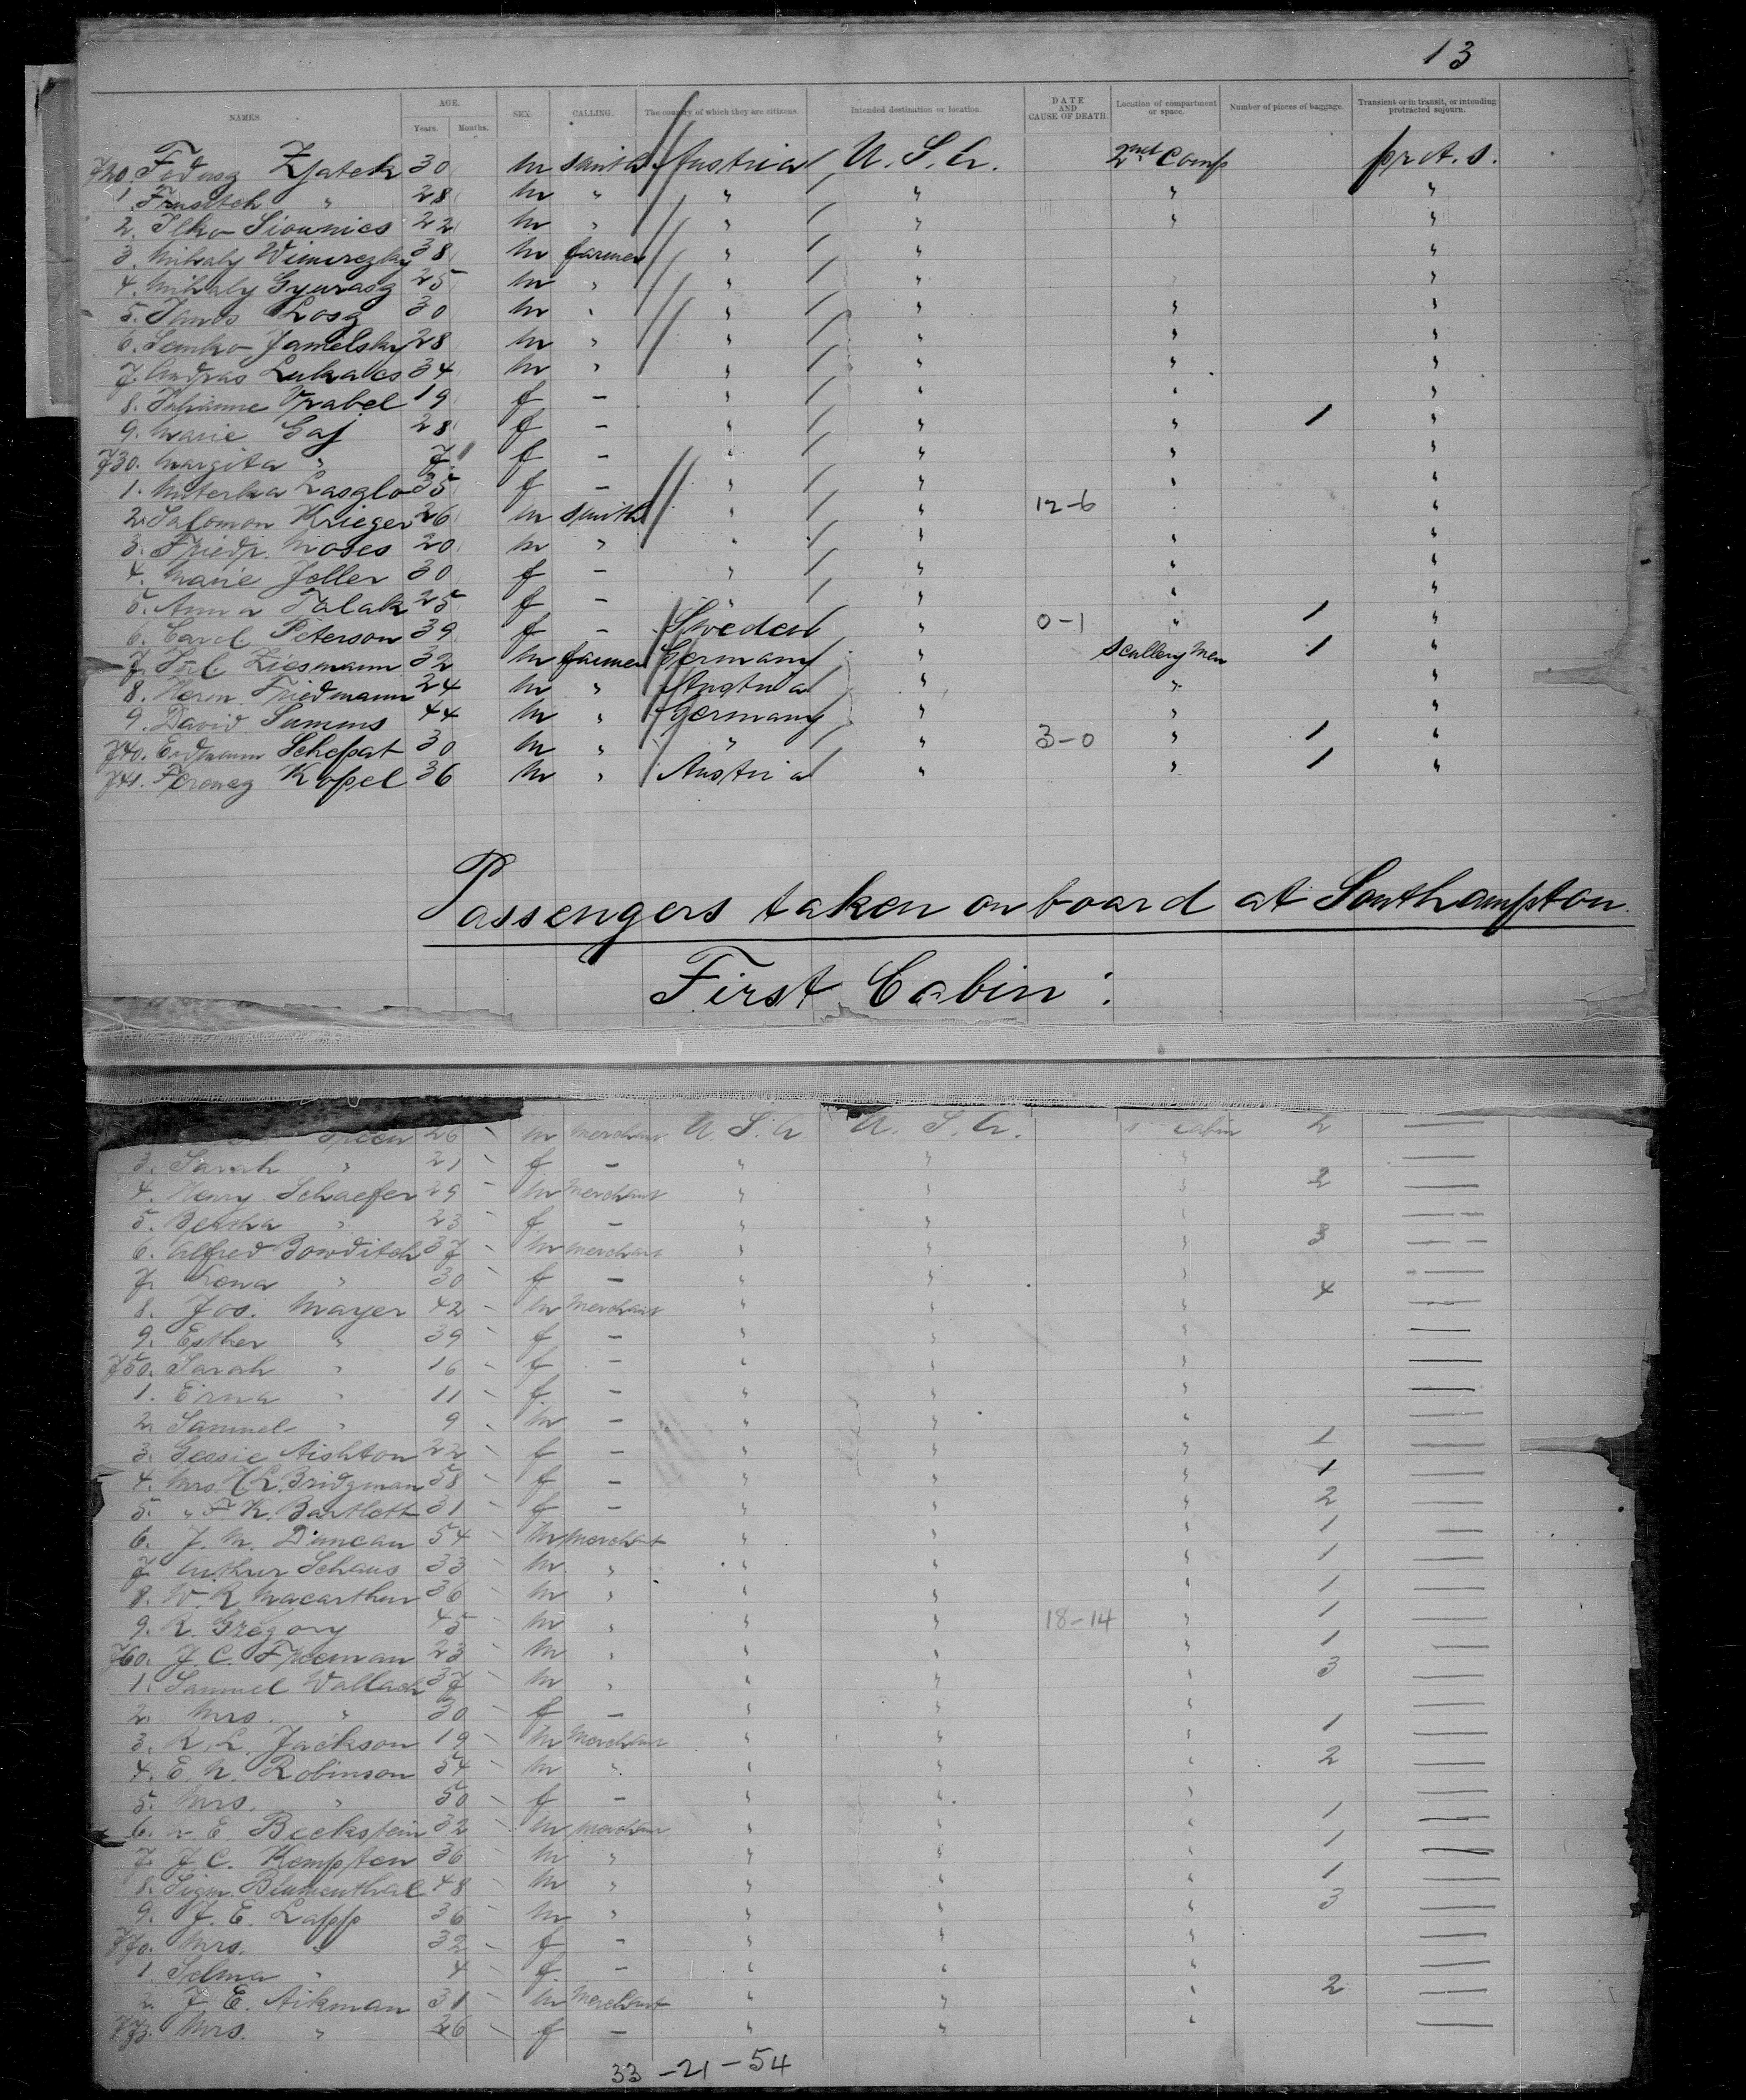 13
NAMES. AGE. Years. Months. SEX. CALLING. The country of which they are citizens. Intended destination or location. DATE AND CAUSE OF DEATH. Location of compartment or space. Number of pieces of baggage. Transient or in transit, or intending protracted sojourn.
720. Zjatek 30 m smith Austria U. S. A. 2nd Comp prot. s.
1. " 28 m " " " " "
2. Ilko 22 m " " " " "
3. Mihaly 38 m farmer " " "
4. Mihaly Gyurasz 25 m " " " "
5. Janos Losz 30 m " " " " "
6. Semko 28 m " " " " "
7. Andras Lukacs 34 m " " " " "
8. Vrabel 19 f – " " " "
9. Marie Gaj 28 f – " " " 1 "
730. Margita " 7 f – " " " "
1. Laszlo 35 f – " " " "
2. Salomon Krieger 26 m smith " " 12-6 "
3. Friedr. Moses 20 m " " " " "
4. Marie Jeller 30 f – " " " "
5. Anna Talak 25 f – " " " "
6. Carol. Peterson 39 f – Sweden " 0-1 " 1 "
7. Ziesmann 32 m farmer Germany " Scullery Men 1 "
8. Herm. Friedmann 24 m " Austria " " "
9. David 44 m " Germany " " "
740. Erdmann Schepat 30 m " " " 3-0 " 1 "
741. Ferencz Kopel 36 m " Austria " " 1 "
Passengers taken on board at Southampton.
First Cabin:
26 m merchant U. S. A. U. S. A. 1 Cabin 2 —
3. Sarah " 21 f – " " " —
4. Henry Schaefer 29 m merchant " " " 2 —
5. Bertha " 23 f – " " " —
6. Alfred Bowditch 37 m merchant " " " 3 —
7. " 30 f – " " " —
8. Jos. Mayer 42 m merchant " " " 4 —
9. Esther " 39 f – " " " —
750. Sarah " 16 f – " " " —
1. Erna " 11 f – " " " —
2. Samuel " 9 m – " " " —
3. Gessie Aishton 22 f – " " " 1 —
4. Mrs. H. L. Bridgman 58 f – " " " 1 —
5. " F. K. Bartlett 31 f – " " " 2 —
6. J. M. Duncan 54 m merchant " " " 1 —
7. Arthur Schaus 33 m " " " " 1 —
8. W. R. Macarthur 36 m " " " " 1 —
9. R. Gregory 45 m " " " 18-14 " 1 —
760. J. C. Freeman 23 m " " " " 1 —
1. Samuel Wallach 37 m " " " " 3 —
2. Mrs. " 30 f – " " " —
3. R. L. Jackson 19 m merchant " " " 1 —
4. E. N. Robinson 54 m " " " " 2 —
5. Mrs. " 50 f – " " " —
6. E. Beckstein 32 m merchant " " " 1 —
7. J. C. Kempton 36 m " " " " 1 —
8. Sigm. Blumenthal 48 m " " " " 1 —
9. J. E. Lapp 36 m " " " " 3 —
770. Mrs. " 32 f – " " " —
1. Selma " 4 f – " " " —
2. J. E. Aikman 31 m merchant " " " 2 —
773. Mrs. " 26 f – " " " —
33 – 21 – 54